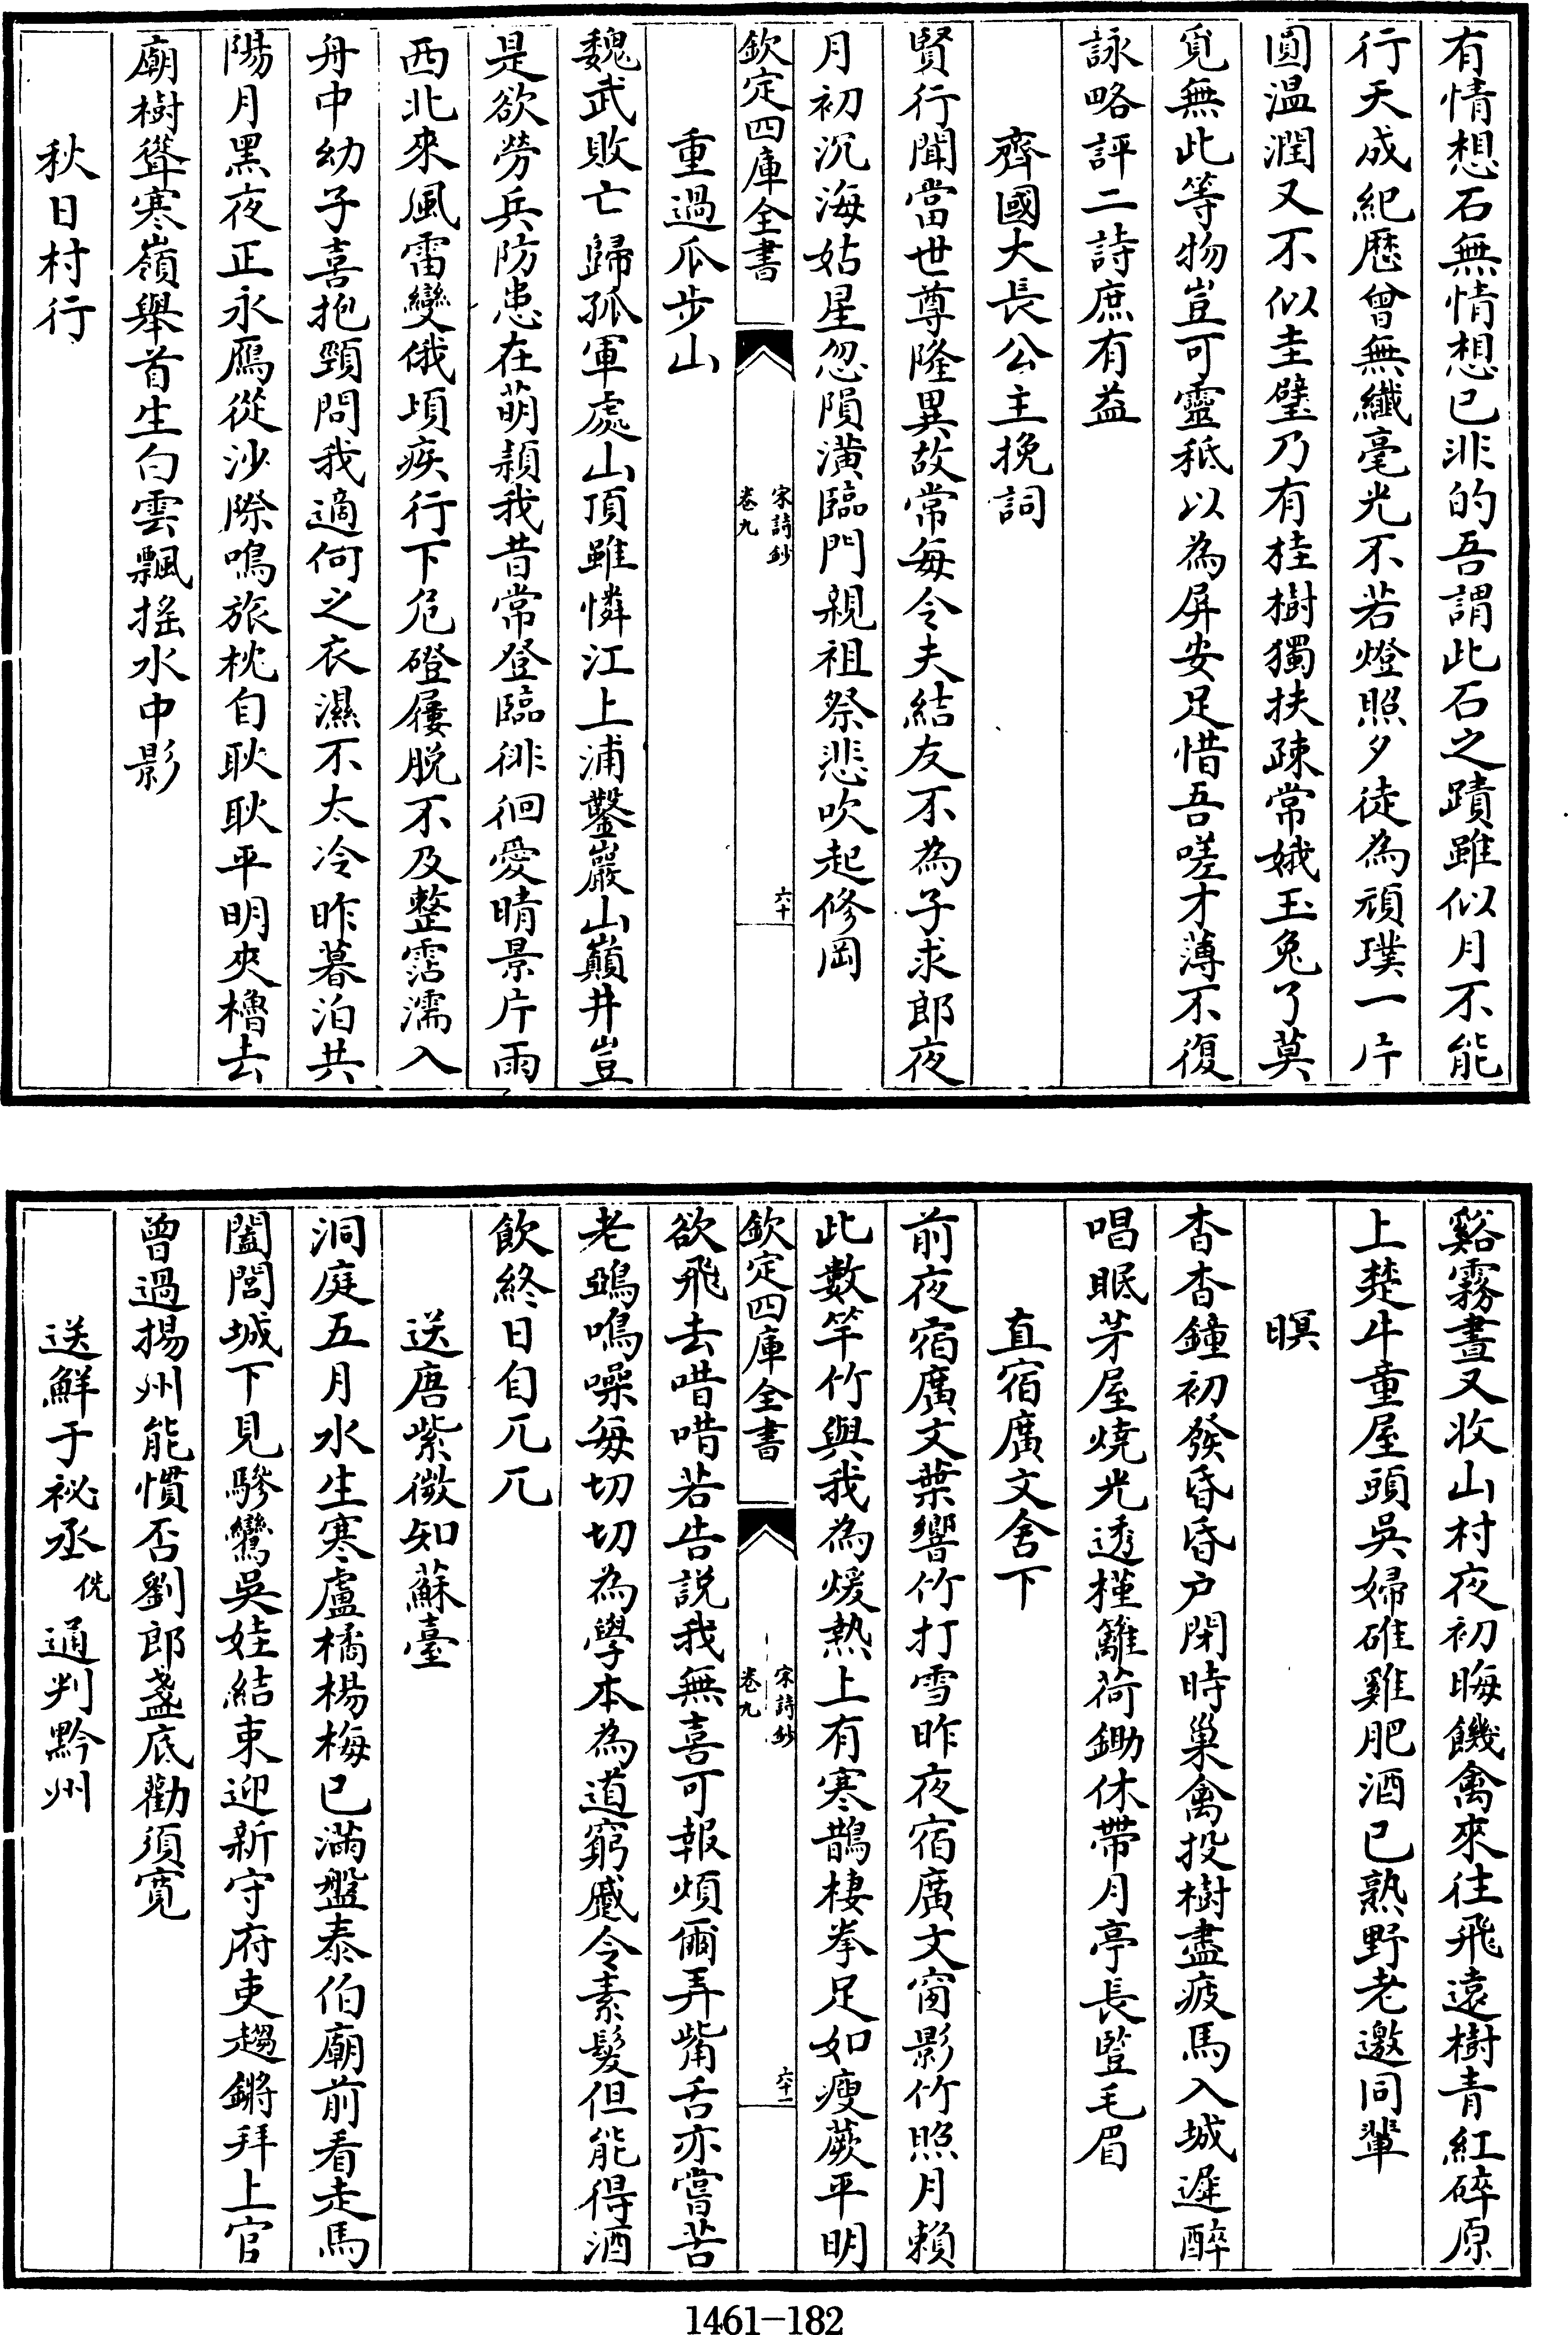 有情想石無情想已非的吾謂此石之蹟雖似月不能
行天成紀歴曾無纎毫光不若燈照夕徒為頑璞一片
圓温潤又不似圭璧乃有桂樹獨扶疎常娥玉兔了莫
覓無此等物豈可靈秪以為屏安足惜吾嗟才薄不復
詠略評二詩庶有益
齊國大長公主挽詞
賢行聞當世尊隆異故常每令夫結友不為子求郎夜
月初沉海姑星忽隕潢臨門親祖祭悲吹起修岡
欽定四庫全書
宋詩鈔
卷九
六十
重過瓜步山
魏武敗亡歸孤軍處山頂雖憐江上浦鑿巖山巔井豈
是欲勞兵防患在萌頴我昔常登臨徘徊愛晴景片雨
西北來風雷變俄頃疾行下危磴屨脱不及整霑濡入
舟中幼子喜抱頸問我適何之衣濕不太冷昨暮泊共
陽月黑夜正永鴈從沙際鳴旅枕自耿耿平明夾櫓去
廟樹聳寒嶺舉首生白雲飄摇水中影
秋日村行
谿霧晝又收山村夜初晦饑禽來往飛遠樹青紅碎原
上楚牛童屋頭吳婦碓雞肥酒已熟野老邀同輩
暝
杳杳鐘初發昏昏户閉時巢禽投樹盡疲馬入城遲醉
唱眠茅屋燒光透槿籬荷鋤休帶月亭長豎毛眉
直宿廣文舍下
前夜宿廣文葉響竹打雪昨夜宿廣文窗影竹照月賴
此數竿竹與我為煖熱上有寒鵲棲拳足如瘦蕨平明
欽定四庫全書
宋詩鈔
卷九
六十一
欲飛去唶唶若告説我無喜可報煩爾弄觜舌亦嘗苦
老鵶鳴噪每切切為學本為道窮慼令素髮但能得酒
飲終日自兀兀
送唐紫微知蘇臺
洞庭五月水生寒盧橘楊梅已滿盤泰伯廟前看走馬
闔閭城下見驂鸞吳娃結束迎新守府吏趨鏘拜上官
曾過揚州能慣否劉郎盞底勸須寛
送鮮于祕丞侁通判黔州
1461-182